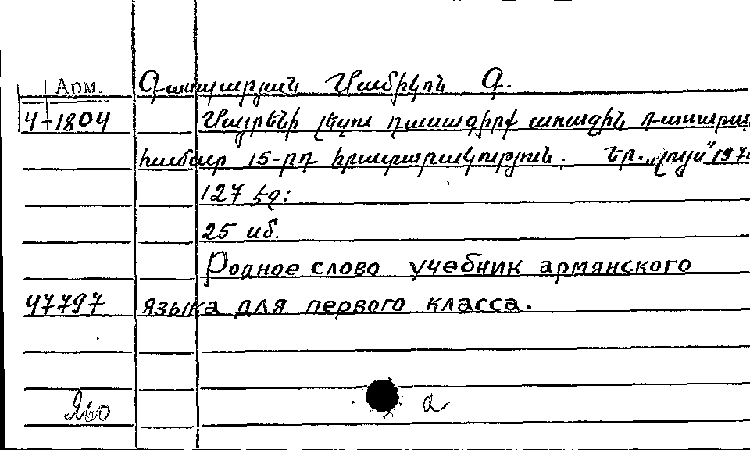 Арм. Գասպարյան Մամիկոն Գ.
4-1804 Մայրենի լեզու դասագիրք առաջին դասարա
համար 15-րդ հրատարակություն. Եր. „Լույս" 197
127 էջ:
25 սմ.
Родное слово учебник армянского
47797 языка для первого класса.
260 а